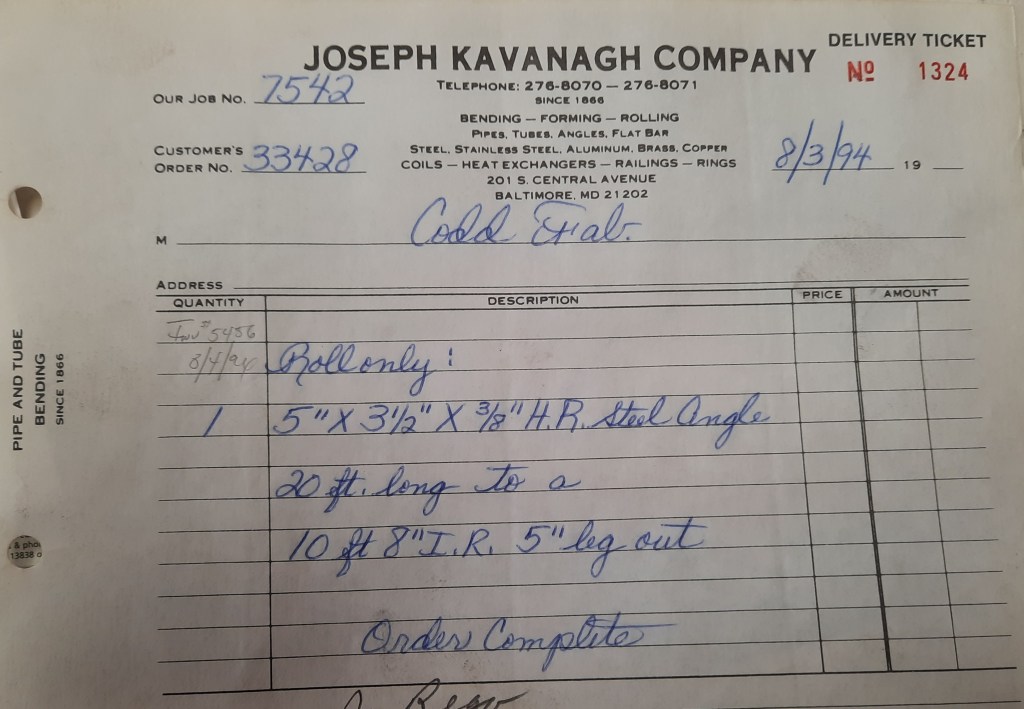 DELIVERY TICKET
JOSEPH KAVANAGH COMPANY
Nº 1324
TELEPHONE: 276-8070 — 276-8071
SINCE 1866
OUR JOB NO. 7542
BENDING — FORMING — ROLLING
PIPES, TUBES, ANGLES, FLAT BAR
STEEL, STAINLESS STEEL, ALUMINUM, BRASS, COPPER
CUSTOMER'S
ORDER NO. 33428
COILS — HEAT EXCHANGERS — RAILINGS — RINGS
8/3/94 19
201 S. CENTRAL AVENUE
BALTIMORE, MD 21202
M Codd Fab.
ADDRESS
QUANTITY DESCRIPTION PRICE AMOUNT
Inv # 5456
8/4/94
Roll only:
1 5" X 3 1/2" X 3/8" H.R. Steel Angle
20 ft. long to a
10 ft 8" I.R. 5" leg out
Order Complete
PIPE AND TUBE
BENDING
SINCE 1866
& pho
13838 o